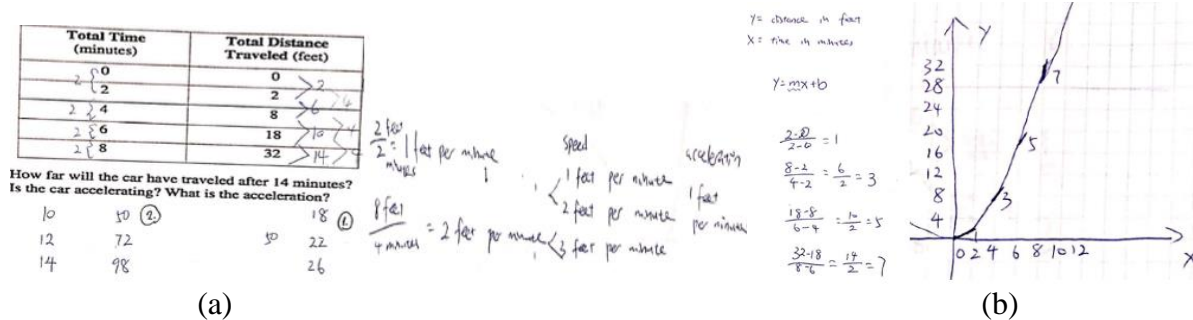 Total Time (minutes) Total Distance Traveled (feet)
2 { 0 0 > 2
2 2 > 4
2 { 4 8 > 6
2 { 6 18 > 10 > 4
2 { 8 32 > 14 > 4
How far will the car have traveled after 14 minutes?
Is the car accelerating? What is the acceleration?
10 50 ② 18 ①
12 72 50 22
14 98 26
2 feet / 2 minutes = 1 feet per minute
8 feet / 4 minutes = 2 feet per minute
speed
1 feet per minute
2 feet per minute
3 feet per minute
acceleration
1 feet
per minute
Y = distance in feet
X = time in minutes
Y = mx + b
2-0 / 2-0 = 1
8-2 / 4-2 = 6/2 = 3
18-8 / 6-4 = 10/2 = 5
32-18 / 8-6 = 14/2 = 7
Y
32
28
24
20
16
12
8
4
7
5
3
1
0 2 4 6 8 10 12
X
(a) (b)